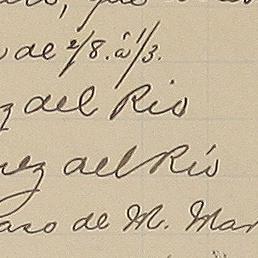 de 2/8. à 1/3.
del Rio
ez del Río
aso de M. Mar